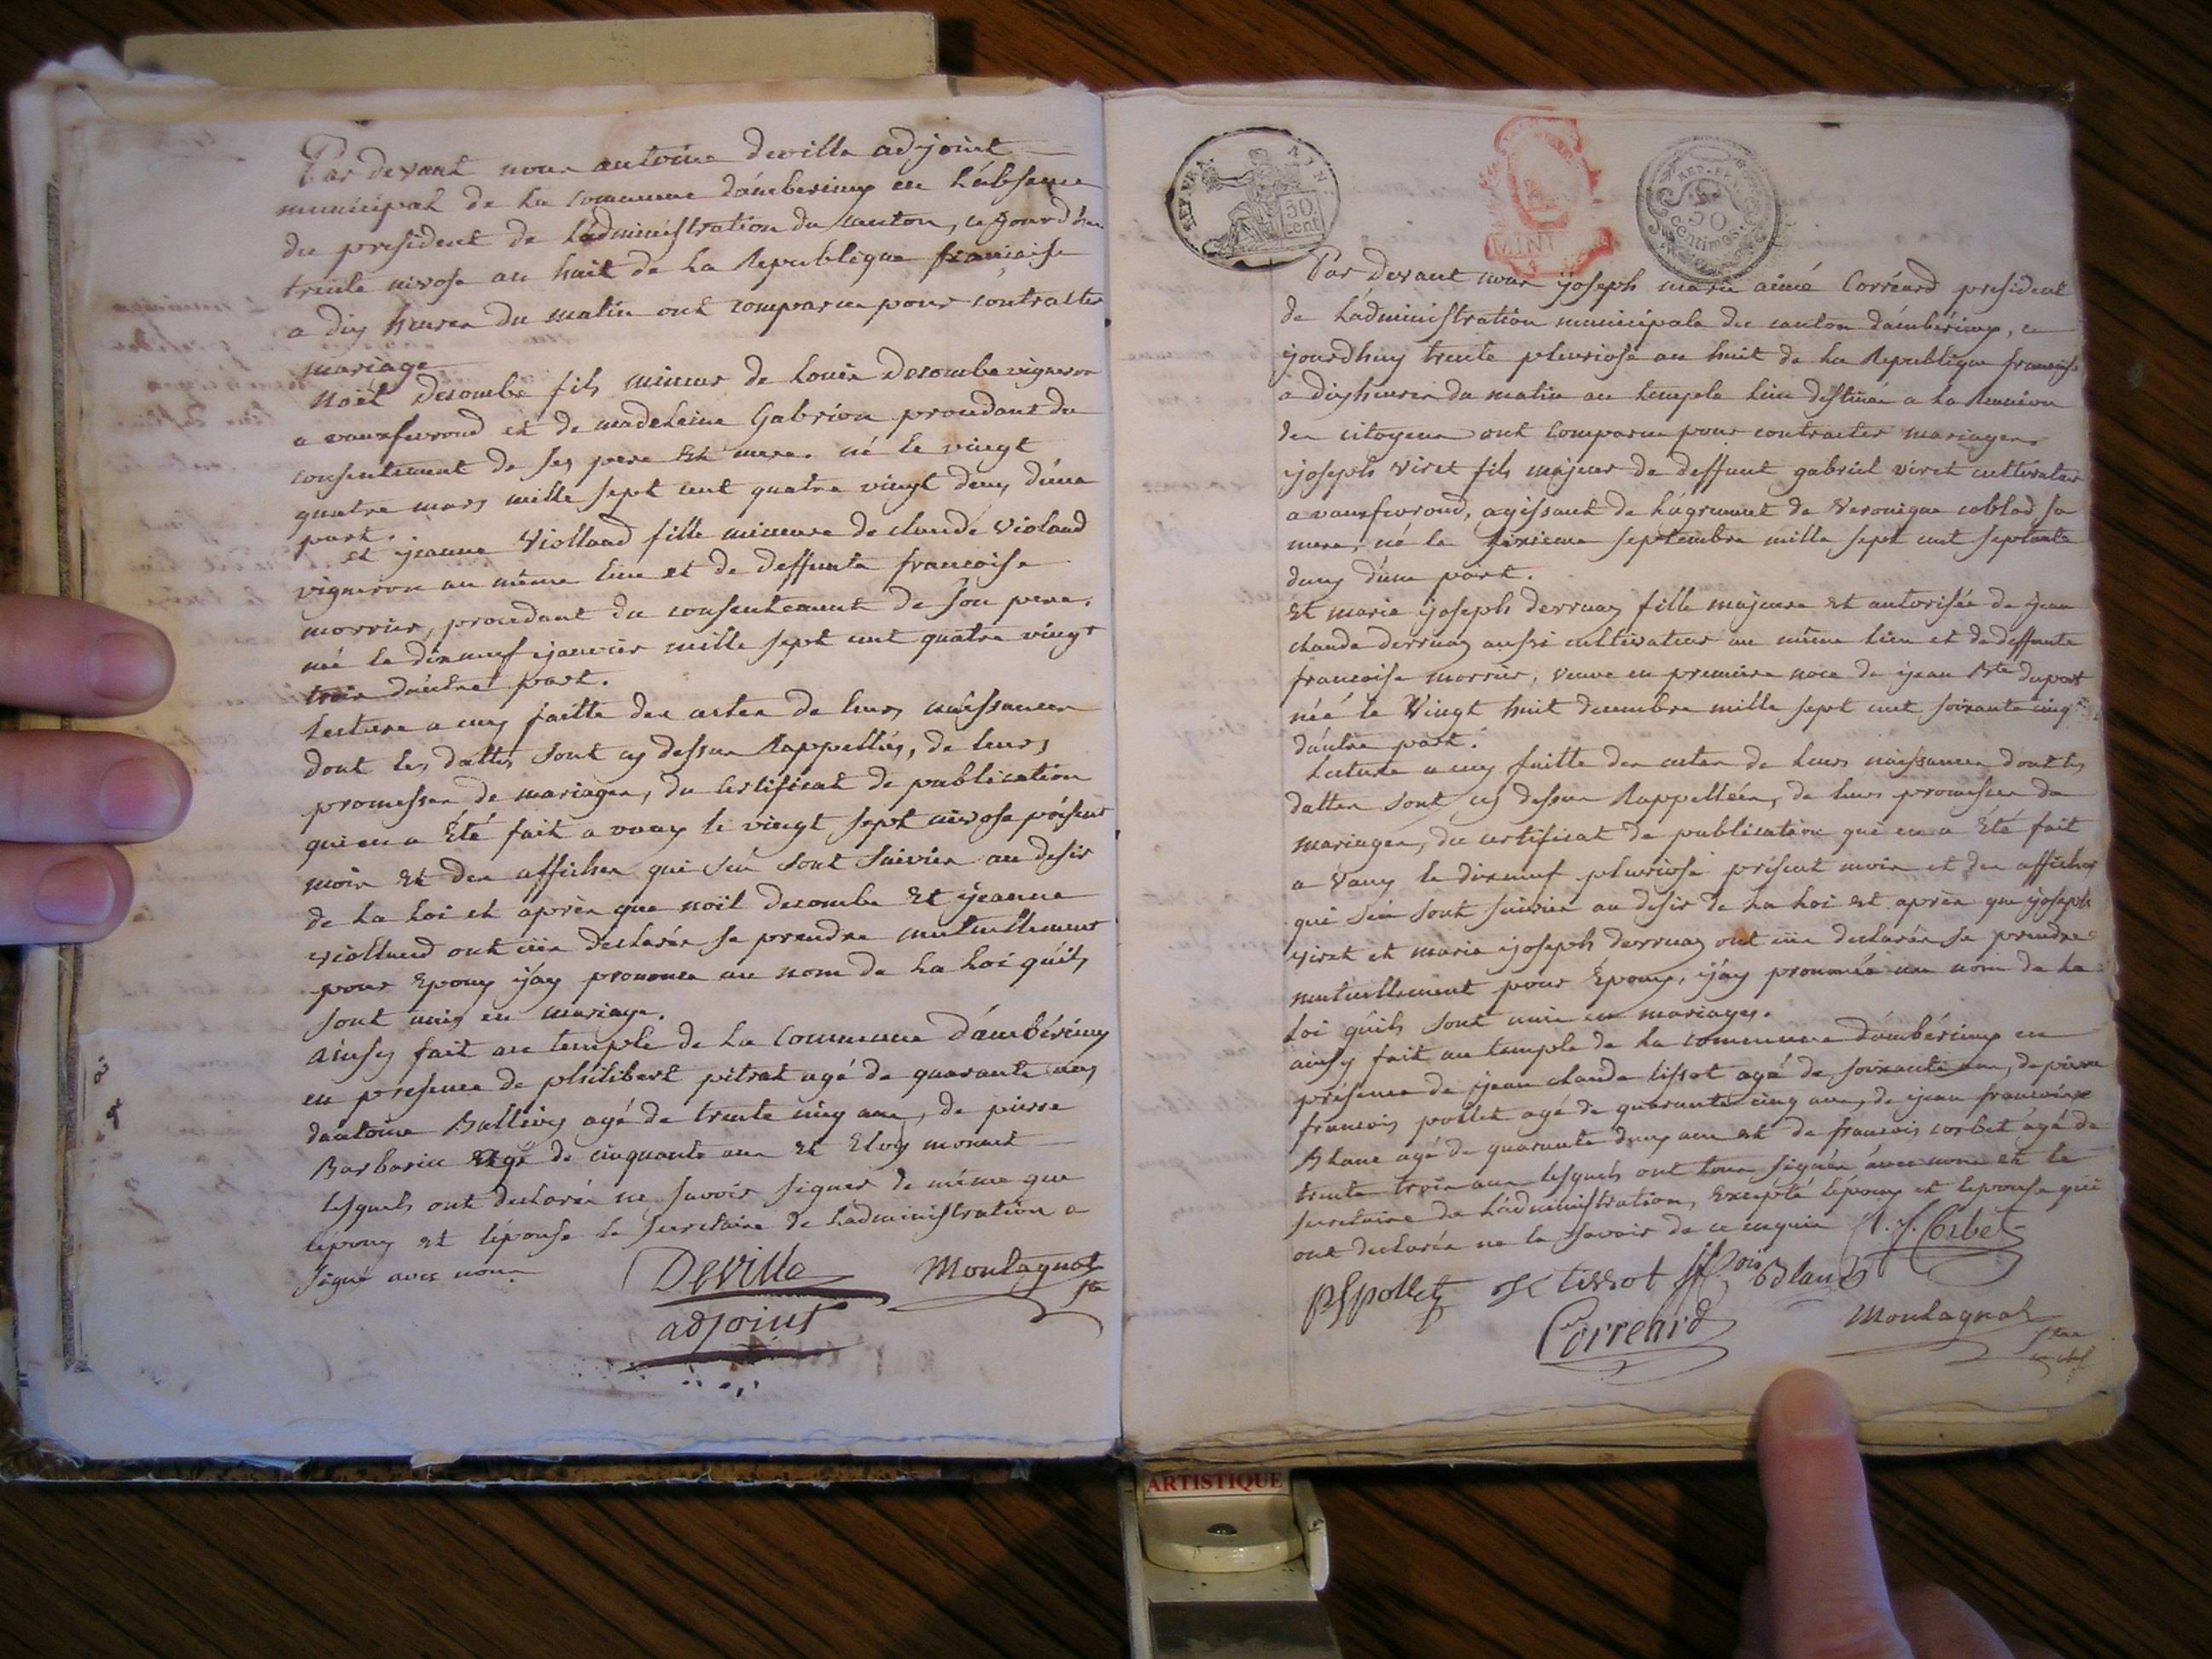 Par devant nous antoine deville adjoint
municipal de la commune d'amberieux en l'absence
du president de l'administration du canton, ce jourd'hui
trente nivose an huit de la Republique françaisse
a dix heures du matin ont comparus pour contracter
mariage
noël decombe fils mineur de louis decombe vigneron
a vauxfevroud et de madeleine Gabrion procedant du
consentement de ses pere et mere. né le vingt
quatre mars mille sept cent quatre vingt deux d'une
part.
et jeanne Viollaud fille mineure de claude violaud
vigneron au même lieu et de deffunte francoise
morrier, procedant du consentement de son pere.
né le dixneuf janvier mille sept cent quatre vingt
trois d'autre part.
Lecture a euy faitte des actes de leurs naissances
dont les dattes sont cy dessus Rappellés, de leurs
promesses de mariages, du certificat de publication
qui en a été fait a vaux le vingt sept nivose présent
mois et des affiches qui s'en sont suivies au desir
de la loi et après que noël decombe et jeanne
viollaud ont eüe declarés se prendre mutuellement
pour epoux j'ay prononcé au nom de la loi qu'ils
sont unis en mariage.
ainsy fait au temple de la commune d'ambérieux
en presence de philibert pitrat agé de quarante ans
d'antoine Bullivy agé de trente cinq ans, de pierre
Barbarin agé de cinquante ans et Eloy monnet
lesquels ont declarés ne savoir signer de même que
l'epoux et l'épouse le secretaire de l'administration a
signé avec nous
Deville Montagnat
adjoint
REP. FRA. AIN
50
cent
REP. FRA.
50
centimes
Par devant nous joseph marie aimé Corréard president
de l'administration municipale du canton d'ambérieux, ce
jourd'huy trente pluviose an huit de la Republique française
a dix heures du matin au temple lieu destinée a la Reunion
des citoyens ont comparus pour contracter mariages
joseph viret fils majeur de deffunt gabriel viret cultivateur
a vauxfevroud, agissant de l'agrement de Veronique coblod sa
mere, né le sixieme septembre mille sept cent septante
deux d'une part.
et marie joseph derruaz fille majeure et autorisée de jean
claude derruaz aussi cultivateur au même lieu et de deffunte
francoise morrier, veuve en premiere noce de jean Bte duport
née le Vingt huit decembre mille sept cent soixante cinq
d'autre part.
Lecture a euy faitte des actes de leurs naissances dont les
dattes sont cy dessus Rappellées, de leurs promesses de
mariages, du certificat de publication qui en a été fait
a vaux le dixneuf pluviose présent mois et des affiches
qui s'en sont suivies au desir de la loi et après que joseph
viret et marie joseph derruaz ont eüe declarés se prendre
mutuellement pour Epoux, j'ay prononcé au nom de la
loi qu'ils sont unis en mariages.
ainsy fait au temple de la commune d'ambérieux en
présence de jean claude tissot agé de soixante ans, de pierre
francois pollet agé de quarante cinq ans, de jean francoix
Blanc agé de quarante deux ans et de francois corbet agé de
trente trois ans lesquels ont tous signés avec nous et le
secretaire de l'administration, excepté l'epoux et lepouse qui
ont declarés ne le savoir de ce enquis f. Corbet
Pf pollet JC tissot Jfois Blanc
Corréard Montagnat